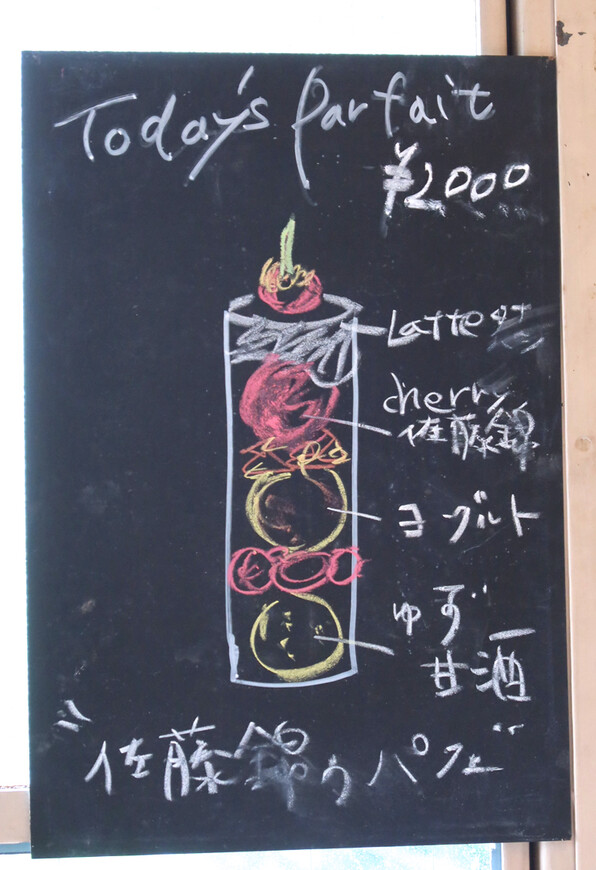 Today's Parfait
¥2000
Latte
cherry
佐藤錦
ヨーグルト
ゆず
甘酒
"佐藤錦のパフェ"